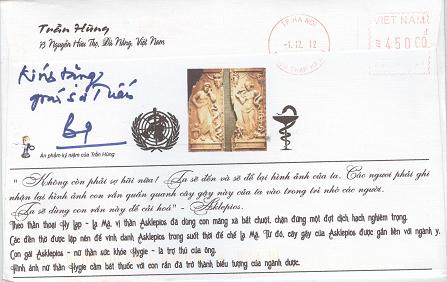 Trần Hùng
73 Nguyễn Hữu Thọ, Đà Nẵng, Việt Nam
TP. HÀ NỘI
-1.12.12
VIỆT NAM
đ
450.00
Kính tặng
Ấn phẩm kỷ niệm của Trần Hùng
" Không còn phải sợ hãi nữa! Ta sẽ đến và sẽ để lại hình ảnh của ta. Các ngươi phải ghi
nhận lại hình ảnh con rắn quấn quanh cây gậy này của ta vào trong trí nhớ các ngươi.
Ta sẽ dùng con rắn này để cải hoá" - Asklepios.
Theo thần thoại Hy Lạp - La Mã, vị thần Asklepios đã dùng con mãng xà bắt chuột, chặn đứng một đợt dịch hạch nghiêm trọng.
Các đền thờ được lập nên để vinh danh Asklepios trong suốt thời đế chế La Mã. Từ đó, cây gậy của Asklepios được gắn liền với ngành y.
Con gái Asklepios - nữ thần sức khỏe Hygie - là trợ thủ của ông.
Hình ảnh nữ thần Hygie cầm bát thuốc với con rắn đã trở thành biểu tượng của ngành dược.